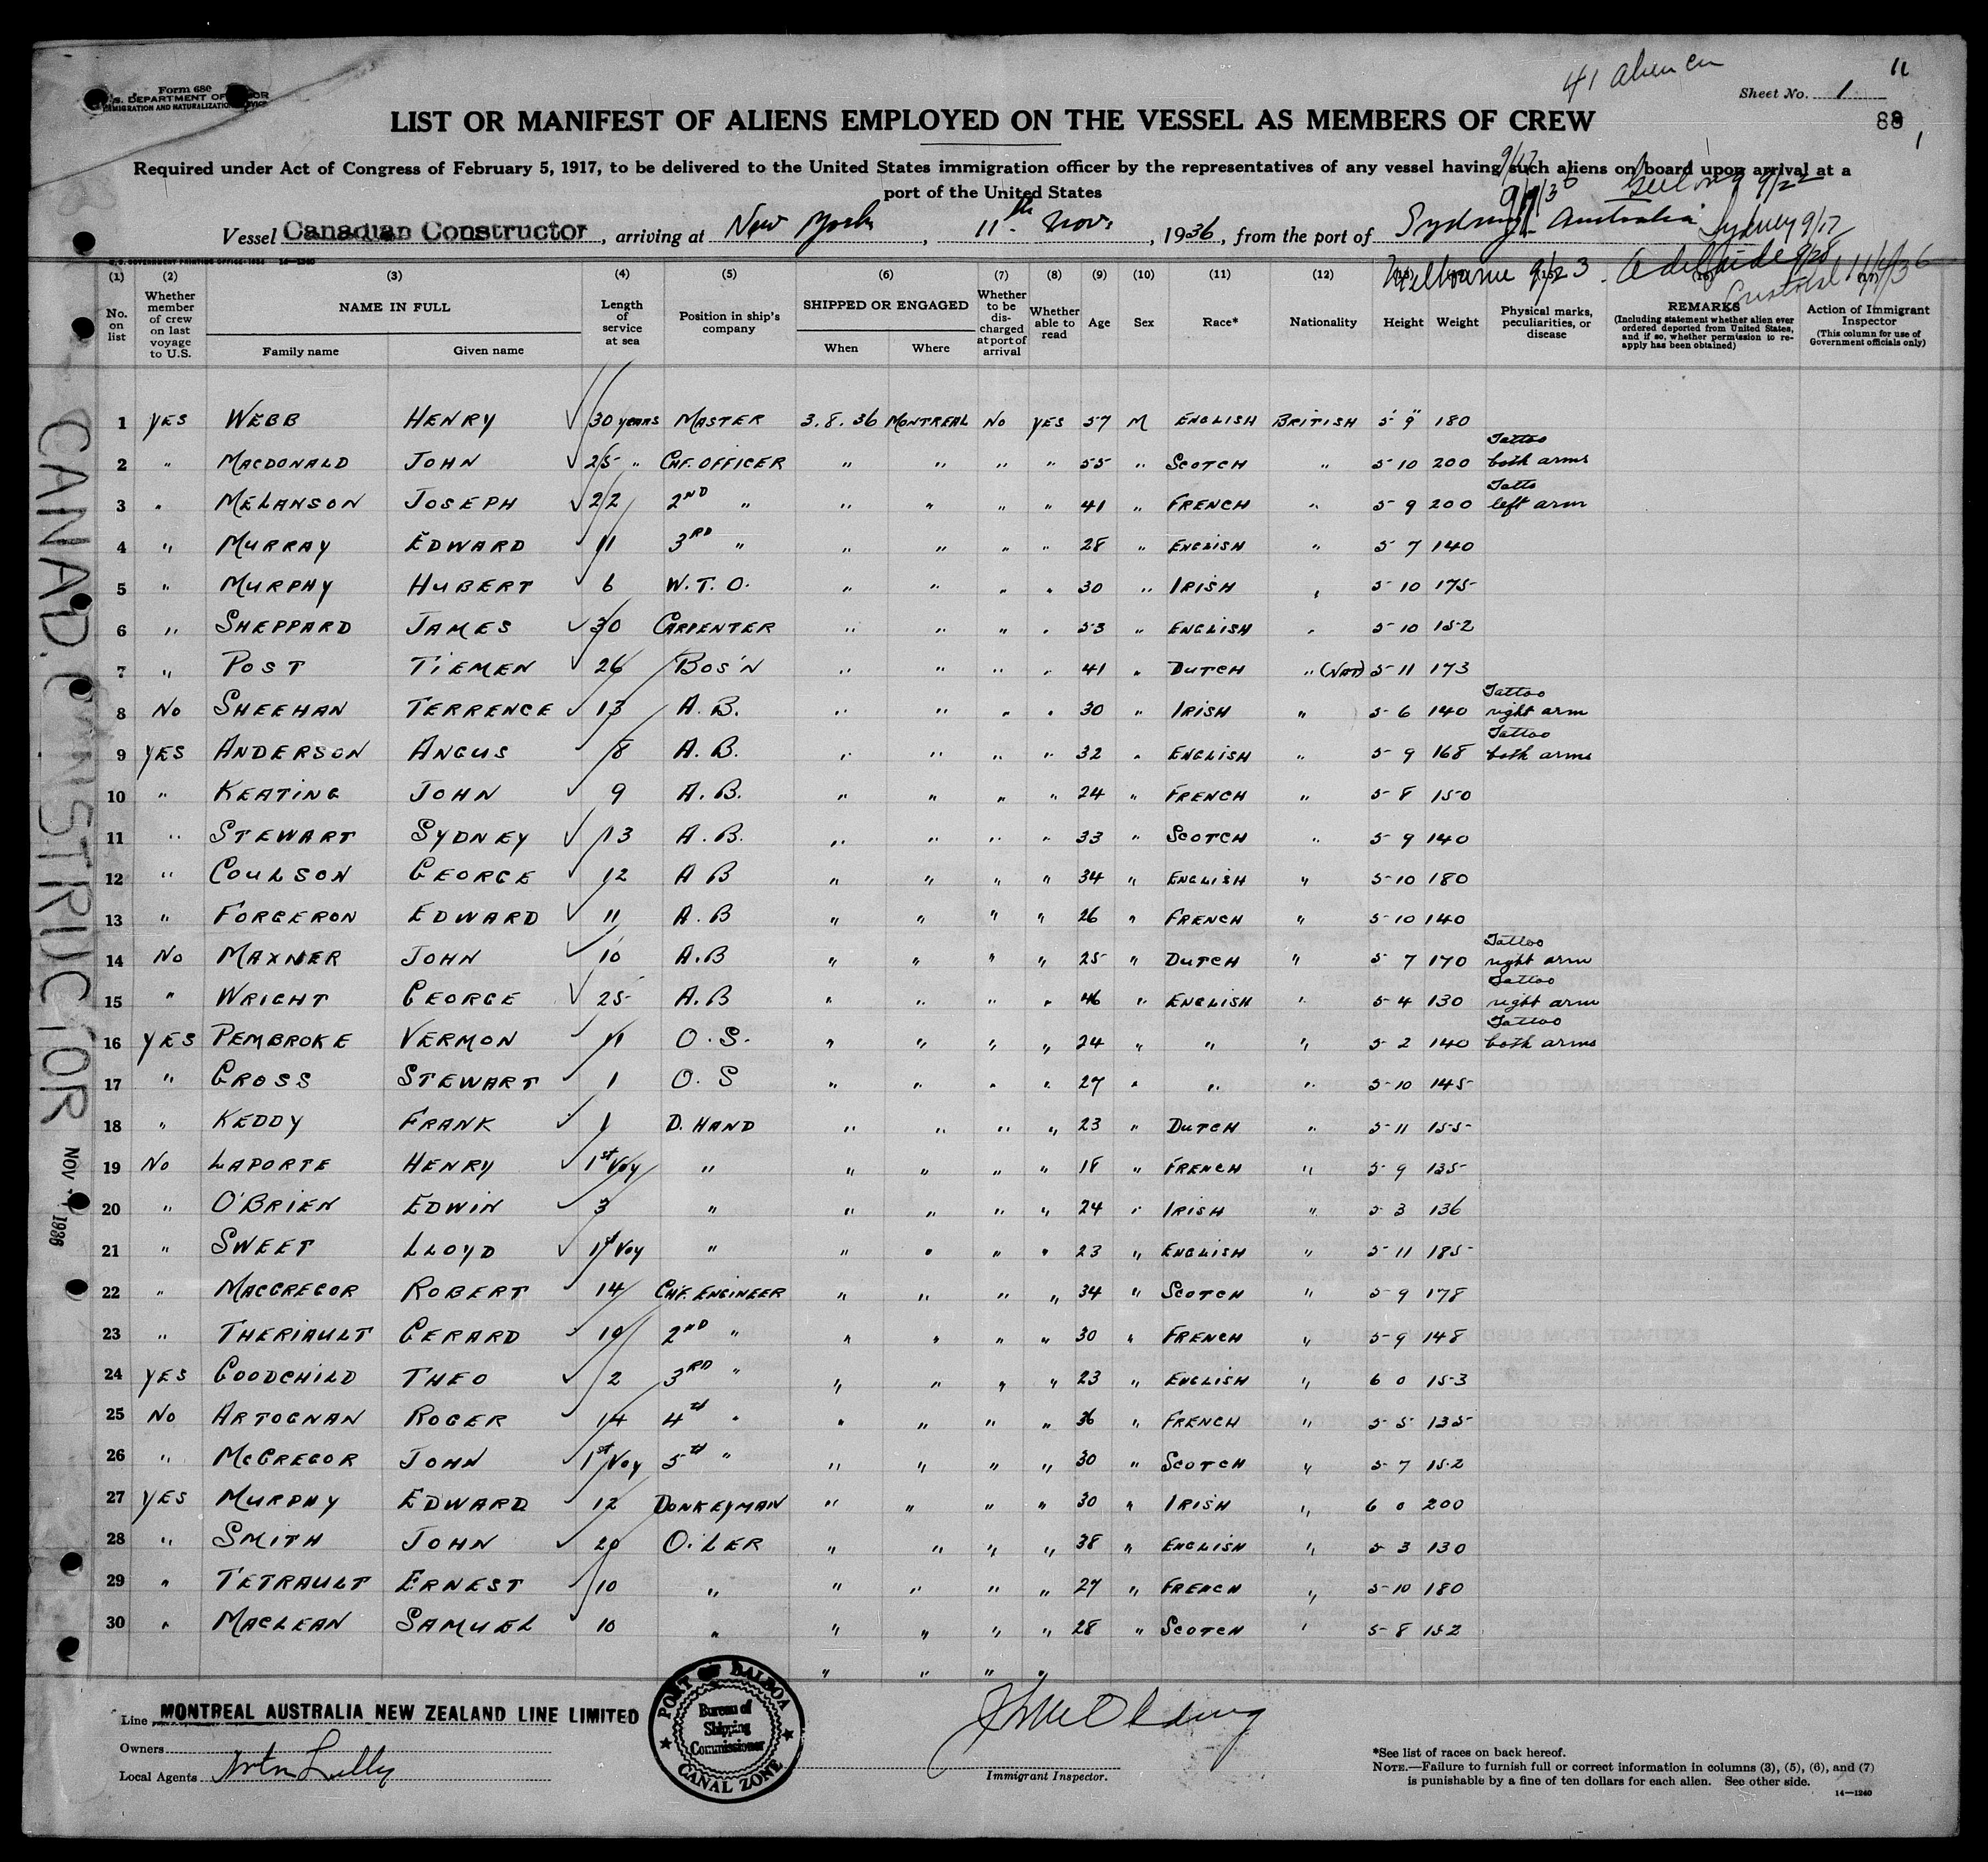 Form 680
U.S. DEPARTMENT OF LABOR
IMMIGRATION AND NATURALIZATION SERVICE
41 alien
11
Sheet No. 1
LIST OR MANIFEST OF ALIENS EMPLOYED ON THE VESSEL AS MEMBERS OF CREW
88
1
Required under Act of Congress of February 5, 1917, to be delivered to the United States immigration officer by the representatives of any vessel having such aliens on board upon arrival at a
port of the United States
9/17 Geelong 9/22
Vessel Canadian Constructor, arriving at New York, 11th Nov., 1936, from the port of Sydney Australia Sydney 9/17
Melbourne 9/23 . Adelaide 9/28
Cristobal 11/4/36
U.S. GOVERNMENT PRINTING OFFICE 14—1240
(1) (2) (3) (4) (5) (6) (7) (8) (9) (10) (11) (12)
No. on list Whether member of crew on last voyage to U.S. NAME IN FULL Family name Given name Length of service at sea Position in ship's company SHIPPED OR ENGAGED When Where Whether to be discharged at port of arrival Whether able to read Age Sex Race* Nationality Height Weight Physical marks, peculiarities, or disease REMARKS (Including statement whether alien ever ordered deported from United States, and if so, whether permission to re-apply has been obtained) Action of Immigrant Inspector (This column for use of Government officials only)
1 YES WEBB HENRY √ 30 years MASTER 3.8.36 MONTREAL NO YES 57 M ENGLISH BRITISH 5' 9" 180
2 " MACDONALD JOHN √ 25 " CHF. OFFICER " " " " 55 " SCOTCH " 5 10 200 Tattoo both arms
3 " MELANSON JOSEPH √ 22 2ND " " " " " 41 " FRENCH " 5 9 200 Tatto left arm
4 " MURRAY EDWARD √ 11 3RD " " " " " 28 " ENGLISH " 5 7 140
5 " MURPHY HUBERT √ 6 W.T.O. " " " " 30 " IRISH " 5 10 175
6 " SHEPPARD JAMES √ 30 CARPENTER " " " " 53 " ENGLISH " 5 10 152
7 " POST TIEMEN √ 26 BOS'N " " " " 41 " DUTCH " (NAT) 5 11 173
8 NO SHEEHAN TERRENCE √ 13 A.B. " " " " 30 " IRISH " 5 6 140 Tattoo right arm
9 YES ANDERSON ANGUS √ 8 A.B. " " " " 32 " ENGLISH " 5 9 168 Tattoo both arms
10 " KEATING JOHN √ 9 A.B. " " " " 24 " FRENCH " 5 8 150
11 " STEWART SYDNEY √ 13 A.B. " " " " 33 " SCOTCH " 5 9 140
12 " COULSON GEORGE √ 12 A B " " " " 34 " ENGLISH " 5 10 180
13 " FORGERON EDWARD √ 11 A.B " " " " 26 " FRENCH " 5 10 140
14 NO MAXNER JOHN √ 10 A.B " " " " 25 " DUTCH " 5 7 170 Tattoo right arm
15 " WRIGHT GEORGE √ 25 A.B " " " " 46 " ENGLISH " 5 4 130 Tattoo right arm
16 YES PEMBROKE VERMON √ 11 O.S. " " " " 24 " " " 5 2 140 Tattoo both arms
17 " GROSS STEWART √ 1 O.S " " " " 27 " " " 5 10 145
18 " KEDDY FRANK √ 1 D. HAND " " " " 23 " DUTCH " 5 11 155
19 NO LAPORTE HENRY √ 1st Voy " " " " " 18 " FRENCH " 5 9 135
20 " O'BRIEN EDWIN √ 3 " " " " " 24 " IRISH " 5 3 136
21 " SWEET LLOYD √ 1st Voy " " " " " 23 " ENGLISH " 5 11 185
22 " MACGREGOR ROBERT √ 14 CHF. ENGINEER " " " " 34 " SCOTCH " 5 9 178
23 " THERIAULT GERARD √ 10 2ND " " " " " 30 " FRENCH " 5 9 148
24 YES GOODCHILD THEO √ 2 3RD " " " " " 23 " ENGLISH " 6 0 153
25 NO ARTOGNAN ROGER √ 14 4TH " " " " " 36 " FRENCH " 5 5 135
26 " MCGREGOR JOHN √ 1st Voy 5TH " " " " " 30 " SCOTCH " 5 7 152
27 YES MURPHY EDWARD √ 12 DONKEYMAN " " " " 30 " IRISH " 6 0 200
28 " SMITH JOHN √ 20 OILER " " " " 38 " ENGLISH " 5 3 130
29 " TETRAULT ERNEST √ 10 " " " " " 27 " FRENCH " 5 10 180
30 " MACLEAN SAMUEL √ 10 " " " " " 28 " SCOTCH " 5 8 152
" " " "
CANAD. CONSTRUCTOR
NOV 1936
Line MONTREAL AUSTRALIA NEW ZEALAND LINE LIMITED
Owners
Local Agents Norton Lilly
PORT OF BALBOA
Bureau of
Shipping
Commissioner
CANAL ZONE
Immigrant Inspector.
*See list of races on back hereof.
NOTE.—Failure to furnish full or correct information in columns (3), (5), (6), and (7)
is punishable by a fine of ten dollars for each alien. See other side.
14—1240